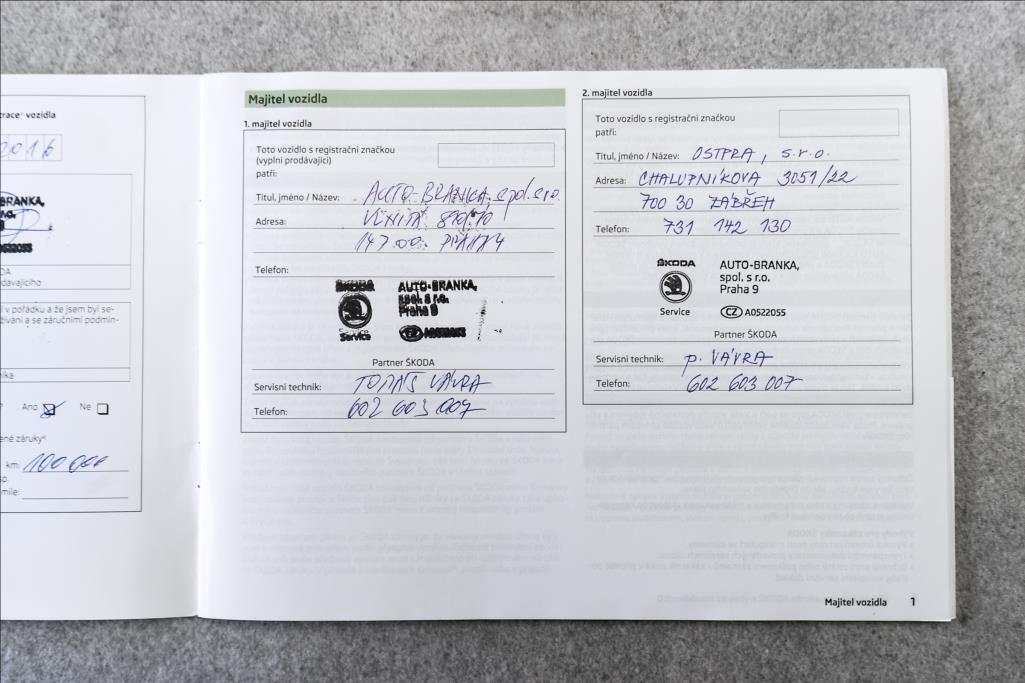 trace" vozidla
2016
BRANKA,
dávajícího
í v pořádku a že jsem byl se-
žívání a se záručními podmín-
Ano Ne
ené záruky"
km: 100 000
míle:
Majitel vozidla
1. majitel vozidla
Toto vozidlo s registrační značkou
(vyplní prodávající)
patří:
Titul, jméno / Název: AUTO-BRANKA, spol. s r.o.
Adresa:
147 00
Telefon:
ŠKODA
Service
AUTO-BRANKA,
spol. s r.o.
Praha 9
CZ A0522055
Partner ŠKODA
Servisní technik: TOMÁŠ VÁVRA
Telefon: 602 603 007
2. majitel vozidla
Toto vozidlo s registrační značkou
patří:
Titul, jméno / Název: OSTPRA, s.r.o.
Adresa: CHALUPNÍKOVA 3051/22
700 30 ZÁBŘEH
Telefon: 731 142 130
ŠKODA
Service
AUTO-BRANKA,
spol. s r.o.
Praha 9
CZ A0522055
Partner ŠKODA
Servisní technik: p. VÁVRA
Telefon: 602 603 007
Majitel vozidla 1